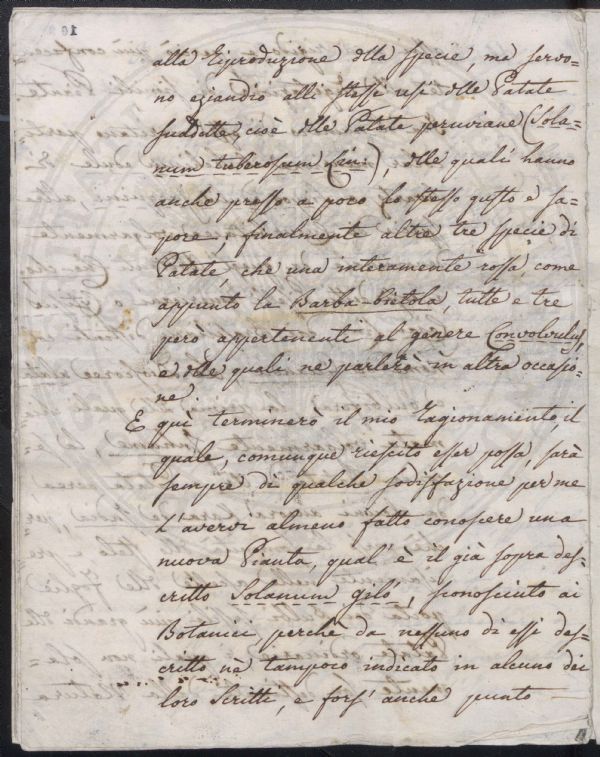 alla riproduzione della specie, ma servo-
no eziandio alli stessi usi delle Patate
suddette, cioè delle Patate peruviane (Sola-
num tuberosum Lin:), delle quali hanno
anche presso a poco lo stesso gusto e sa-
pore. finalmente altre tre specie di
Patate, che una interamente rossa, come
appunto la Barba-bietola, tutte e tre
però appertenenti al genere Convolvulus,
e delle quali ne parlerò in altra occasio-
ne.
E quì terminerò il mio ragionamento, il
quale, comunque riescito esser possa, sarà
sempre di qualche sodisfazione per me
l'avervi almeno fatto conoscere una
nuova Pianta, qual' è il già sopra des-
critto Solanum gilò, sconosciuto ai
Botanici, perchè da nessuno di essi des-
critto nè tampoco indicato in alcuno dei
loro Scritti, e fors' anche punto